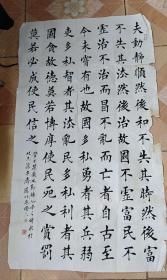 夫動靜順然後和不失其時然後富
不失其法然後治故國不虛富民不
虛治不治而昌不亂而亡者自古至
今未嘗有也故國多私勇者其兵弱
吏多私智者其法亂民多私利者其
國貧故德莫若博厚使民死之賞罰
莫若必成使民信之